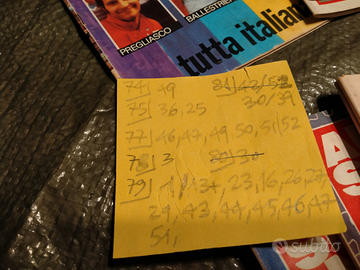 PREGLIASCO
BALLESTRIE
tutta italian
74 49
81 43/52
75 36, 25
30/39
77 46, 47, 49 50, 51, 52
78 3
80 30
79 31, 23, 16, 26, 27,
29, 43, 44, 45, 46, 47
51,
AS
subito